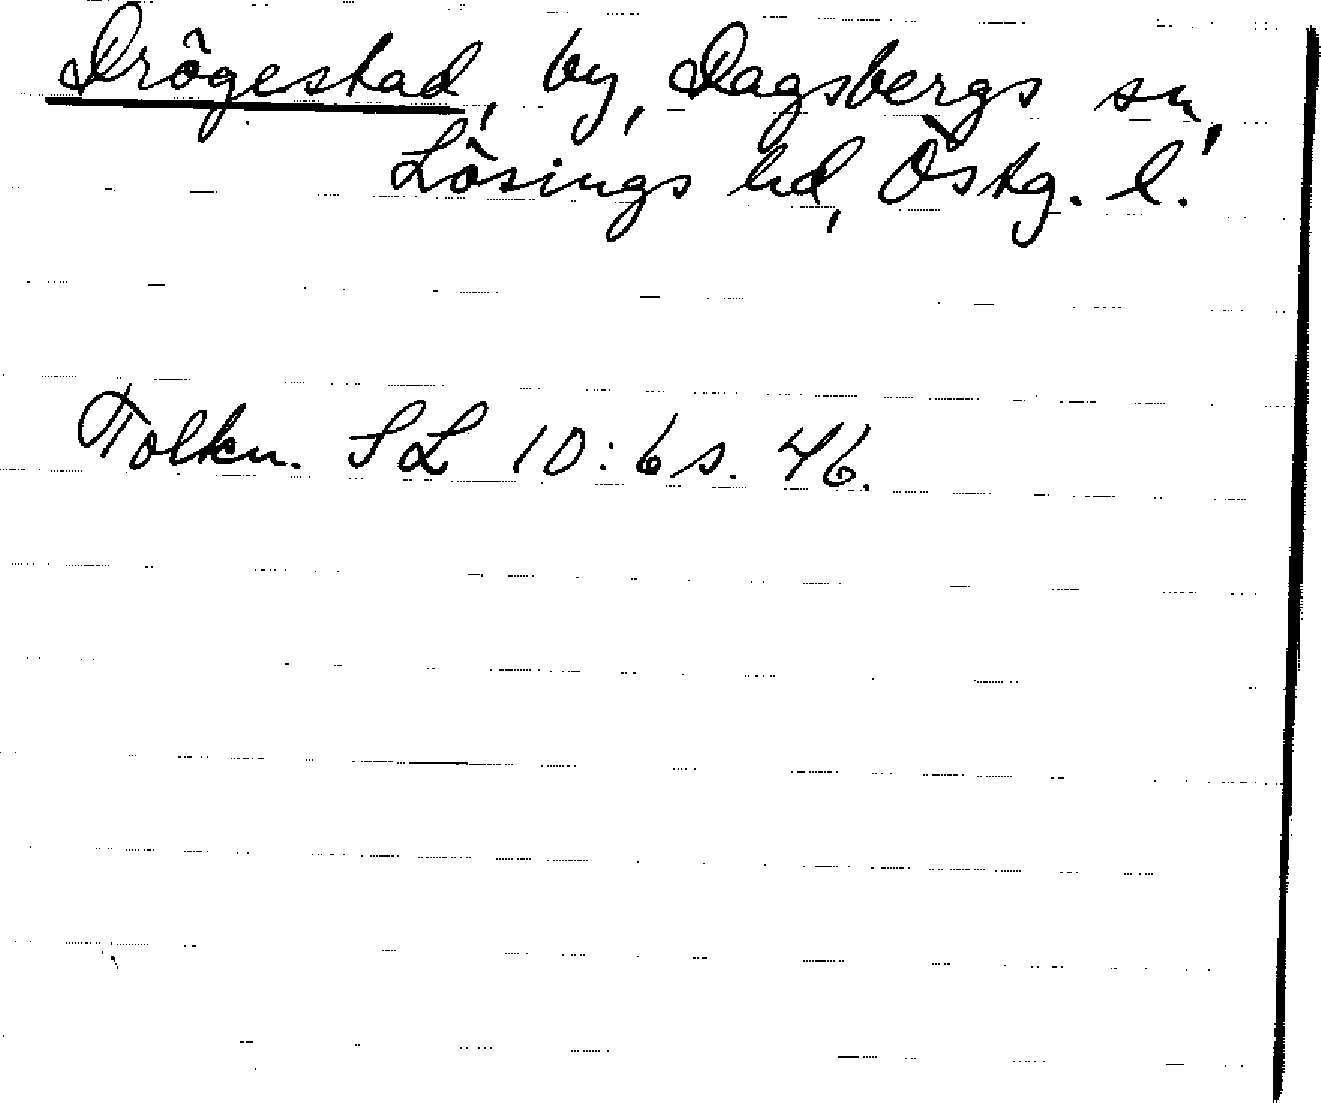 Drögestad, by, Dagsbergs sn,
Lösings hd, Östg. l.
Tolkn. SL 10:6 s. 46.